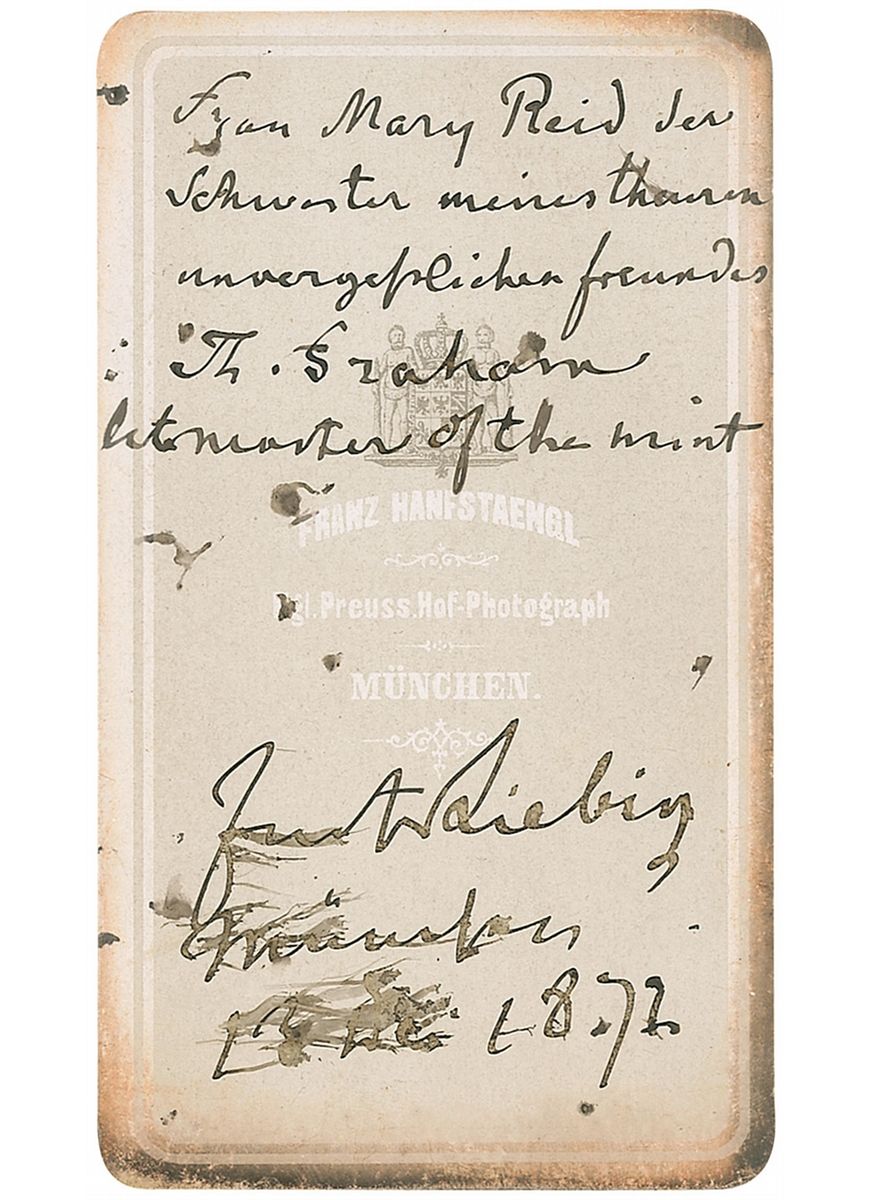 Frau Mary Reid der
Schwester meines theuren
unvergeßlichen freundes
Th. Graham
late master of the mint
FRANZ HANFSTAENGL
Kgl. Preuss. Hof-Photograph
MÜNCHEN.
Just v Liebig
München
1872